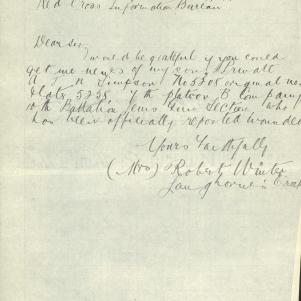 Red Cross Information Bureau
Dear Sir,
would be grateful if you could
get me news of my son Private
Simpson No 5708 original no
plate 5758 7th platoon B Company
10th Battalion Lewis Gun Section who
has been officially reported wounded
Yours Faithfully
(Mrs) Robert Winter
Langhorne's Creek